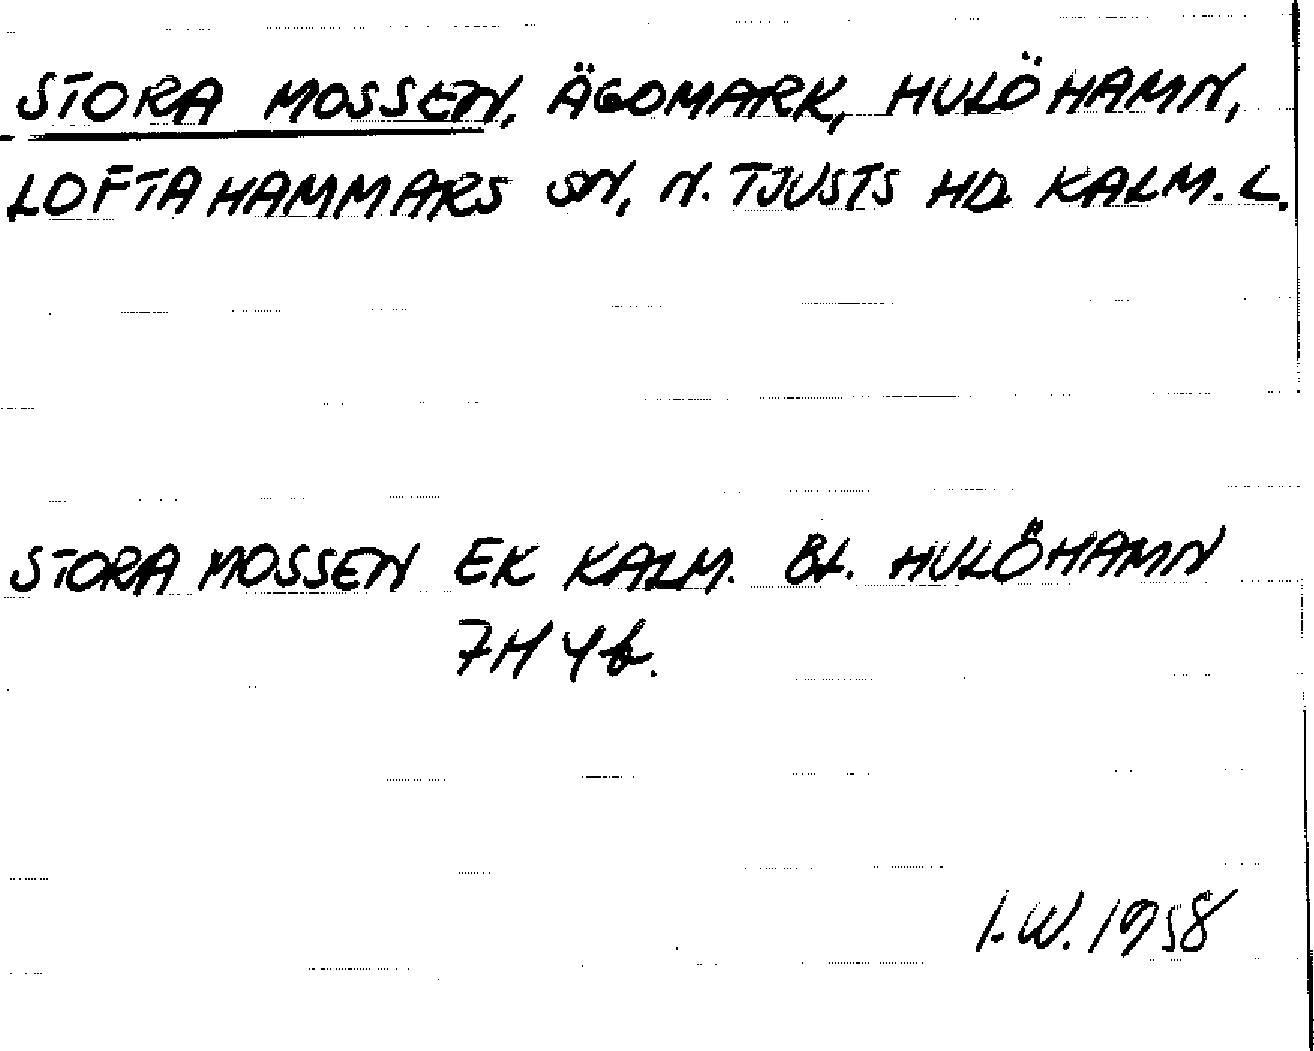 STORA MOSSEN, ÄGOMARK, HULÖHAMN,
LOFTAHAMMARS SN, N. TJUSTS HD. KALM. L.
STORA MOSSEN EK KALM. BL. HULÖHAMN
7H 4b.
I.W. 1958